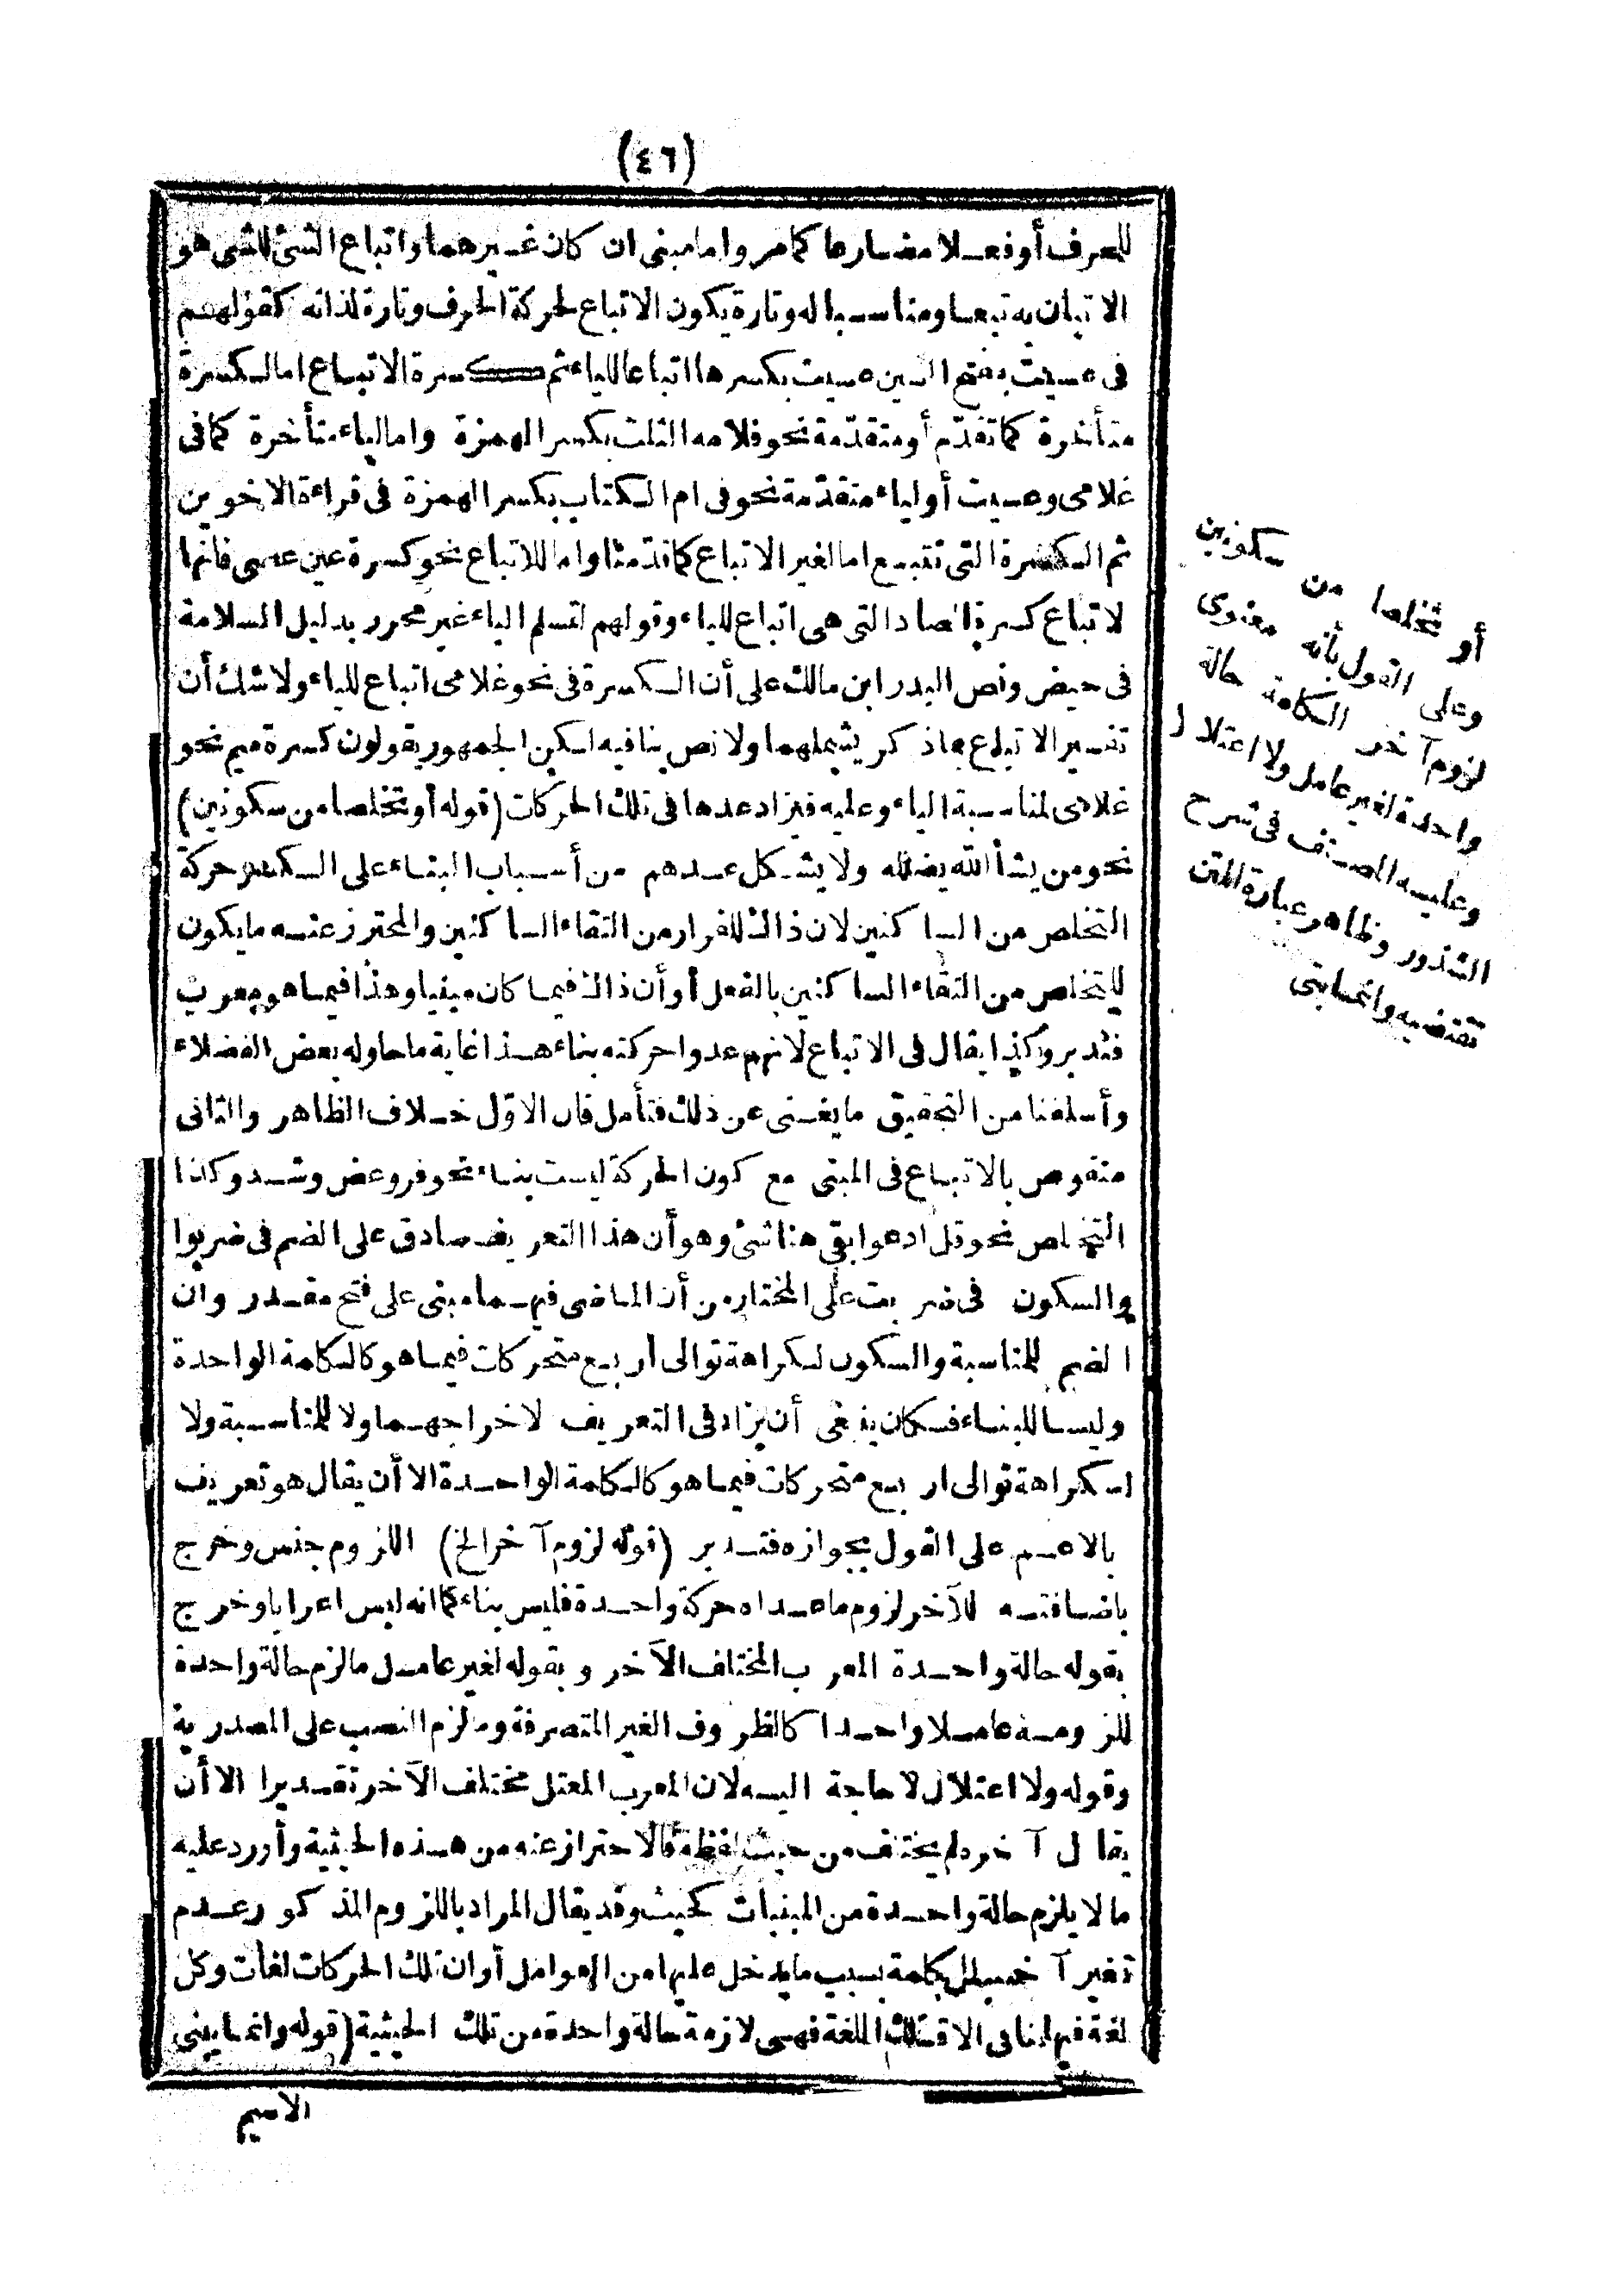 (٤٦)
للمعرف أو فعلا مضارعا كما مر واما مبنى ان كان غيرهما واتباع الشئ للشى هو
الاتيان به تبعا ومناسبا له وتارة يكون الاتباع لحركة الحرف وتارة لذاته كقولهم
فى عسيت بفتح السين عسيت بكسرها اتباعا للياء ثم كسرة الاتباع اما لكسرة
متأخرة كما تقدّم أو متقدّمة نحو فلامه الثلث بكسر الهمزة واما لياء متأخرة كما فى
غلامى وعسيت أو لياء متقدّمة نحو فى ام الكتاب بكسر الهمزة فى قراءة الاخوين
ثم الكسرة التى تتبع اما لغير الاتباع كما قدّمنا واما للاتباع نحو كسرة عين عصى فانها
لاتباع كسرة الصاد التى هى اتباع للياء وقولهم لتسلم الياء غير محرر بدليل السلامة
فى حيض ونص البدر ابن مالك على أن الكسرة فى نحو غلامى اتباع للياء ولا شك أن
تفسير الاتباع بما ذكر يشملهما ولا نص ينافيه لكن الجمهور يقولون كسرة ميم نحو
غلامى لمناسبة الياء وعليه فيزاد عدها فى تلك الحركات (قوله أو تخلصا من سكونين)
نحو من يشأ الله يضلله ولا يشكل عدهم من أسباب البناء على الكسر حركة
التخلص من الساكنين لان ذاك للفرار من التقاء الساكنين والمحترز عنه ما يكون
للتخلص من التقاء الساكنين بالفعل أو أن ذاك فيما كان مبنيا وهذا فيما هو معرب
فتدبر وكذا يقال فى الاتباع لانهم عدوا حركته بناء هذا غاية ما حاوله بعض الفضلاء
وأسلفنا من التحقيق ما يغنى عن ذلك فتأمل فان الاوّل خلاف الظاهر والثانى
منقوص بالاتباع فى المبنى مع كون الحركة ليست بناء نحو فر وعض وشد وكذا
التخلص نحو قل ادعوا بقى هنا شئ وهو أن هذا التعريف صادق على الضم فى ضربوا
والسكون فى ضربت على المختار من أن الماضى فيهما مبنى على فتح مقدر وان
الضم للمناسبة والسكون لكراهة توالى أربع متحركات فيما هو كالكلمة الواحدة
وليسا للبناء فكان ينبغى أن يزاد فى التعريف لاخراجهما ولا للمناسبة ولا
لكراهة توالى اربع متحركات فيما هو كالكلمة الواحدة الا أن يقال هو تعريف
بالاعم على القول بجوازه فتدبر (قوله لزوم آخر الخ) اللزوم جنس وخرج
باضافته للآخر لزوم ما عداه حركة واحدة فليس بناء كما انه ليس اعرابا وخرج
بقوله حالة واحدة المعرب المختلف الآخر وبقوله لغير عامل ما لزم حالة واحدة
للزومه عاملا واحدا كالظروف الغير المتصرفة وما لزم النصب على المصدرية
وقوله ولا اعتلال لا حاجة اليه لان المعرب المعتل مختلف الآخر تقديرا الا أن
يقال آخره لم يختلف من حيث لفظه فالاحتراز عنه من هذه الحيثية وأورد عليه
ما لا يلزم حالة واحدة من المبنيات كحيث وقد يقال المراد باللزوم المذكور عدم
تغير آخر الكلمة بسبب ما يدخل عليها من العوامل أو ان تلك الحركات لغات وكل
لغة فيها بنا فى الاقتلك اللغة فهى لازمة حالة واحدة من تلك الحيثية (قوله وانما يبنى
الاسم
أو تخلصا من سكونين
وعلى القول بأنه معنوى
لزوم آخر الكلمة حالة
واحدة لغير عامل ولا اعتلال
وعليه المصنف فى شرح
الشذور وظاهر عبارة المتن
تقتضيه وانما يبنى